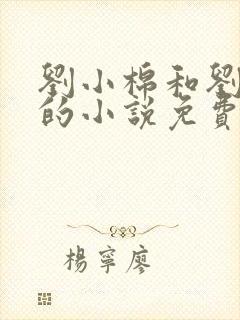 劉小棉和劉
的小說免費
楊寧廖